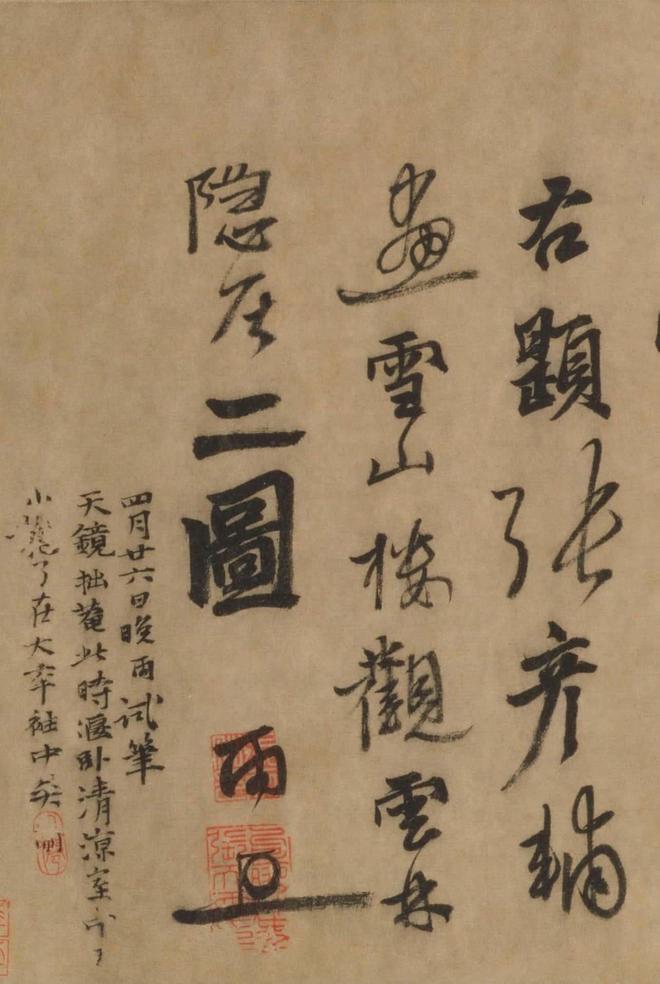 右題張彥輔
畫雪山樓觀雲林
隱居二圖 雨
四月廿六日晚雨試筆
天鏡拙菴此時偃卧清涼室
小了在大章袖中矣